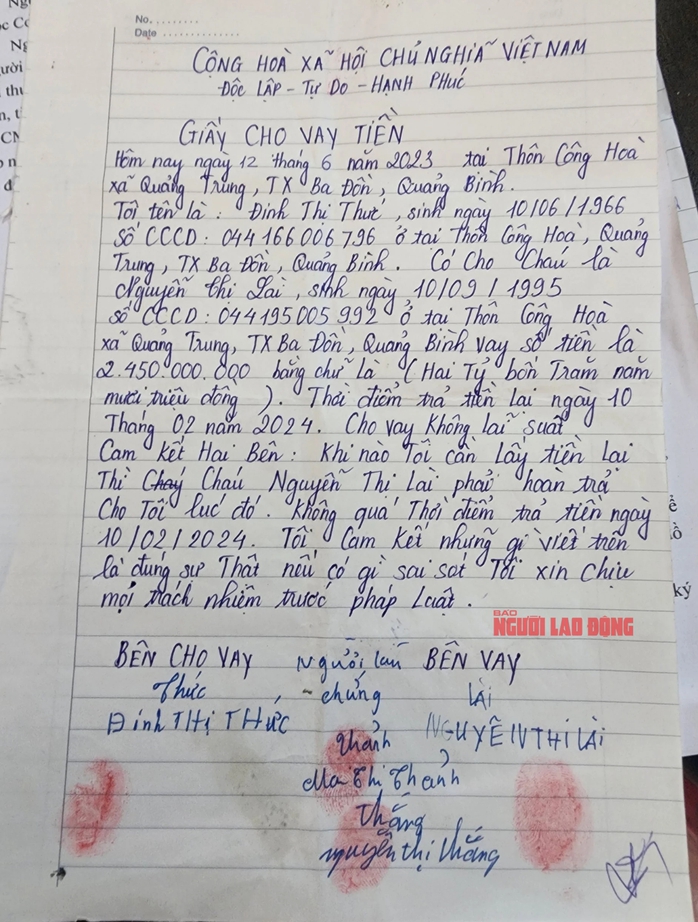 No. ........
Date ..............
CỘNG HOÀ XÃ HỘI CHỦ NGHĨA VIỆT NAM
ĐỘC LẬP - TỰ DO - HẠNH PHÚC
GIẤY CHO VAY TIỀN
Hôm nay ngày 12 tháng 6 năm 2023 tại Thôn Công Hoà
xã Quảng Trung, TX Ba Đồn, Quảng Bình.
Tôi tên là: Đinh Thị Thức, sinh ngày 10/06/1966
Số CCCD: 044166006796 ở tại Thôn Công Hoà, Quảng
Trung, TX Ba Đồn, Quảng Bình. Có Cho Cháu là
Nguyễn Thị Lài, sinh ngày 10/09/1995
Số CCCD: 044195005992 ở tại Thôn Công Hoà
xã Quảng Trung, TX Ba Đồn, Quảng Bình vay số tiền là
2.450.000.000 bằng chữ là (Hai Tỷ bốn Trăm năm
mươi triệu đồng). Thời điểm trả tiền lại ngày 10
Tháng 02 năm 2024. Cho vay Không lãi suất
Cam kết Hai Bên: Khi nào Tôi cần lấy tiền lại
Thì Cháu Nguyễn Thị Lài phải hoàn trả
Cho Tôi lúc đó. Không quá Thời điểm trả tiền ngày
10/02/2024. Tôi Cam Kết những gì viết trên
là đúng sự Thật nếu có gì sai sót Tôi xin Chịu
mọi trách nhiệm trước pháp Luật.
BÁO
NGƯỜI LAO ĐỘNG
BÊN CHO VAY Người làm BÊN VAY
Thức chứng LÀI
Đinh THỊ THỨC Thảnh NGUYỄN THỊ LÀI
Mai Thị Thảnh
Thắng
nguyễn thị thắng